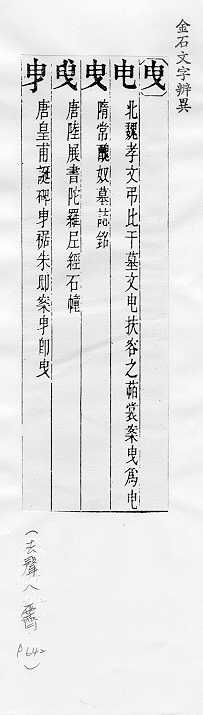 金石文字辨異
(曳)
电 北魏孝文弔比干墓文电扶容之葩裳案曳為电
曳 隋常醜奴墓誌銘
唐陸展書陀羅尼經石幢
唐皇甫誕碑 裾朱邸案 即曳
(去聲八霽 P642)